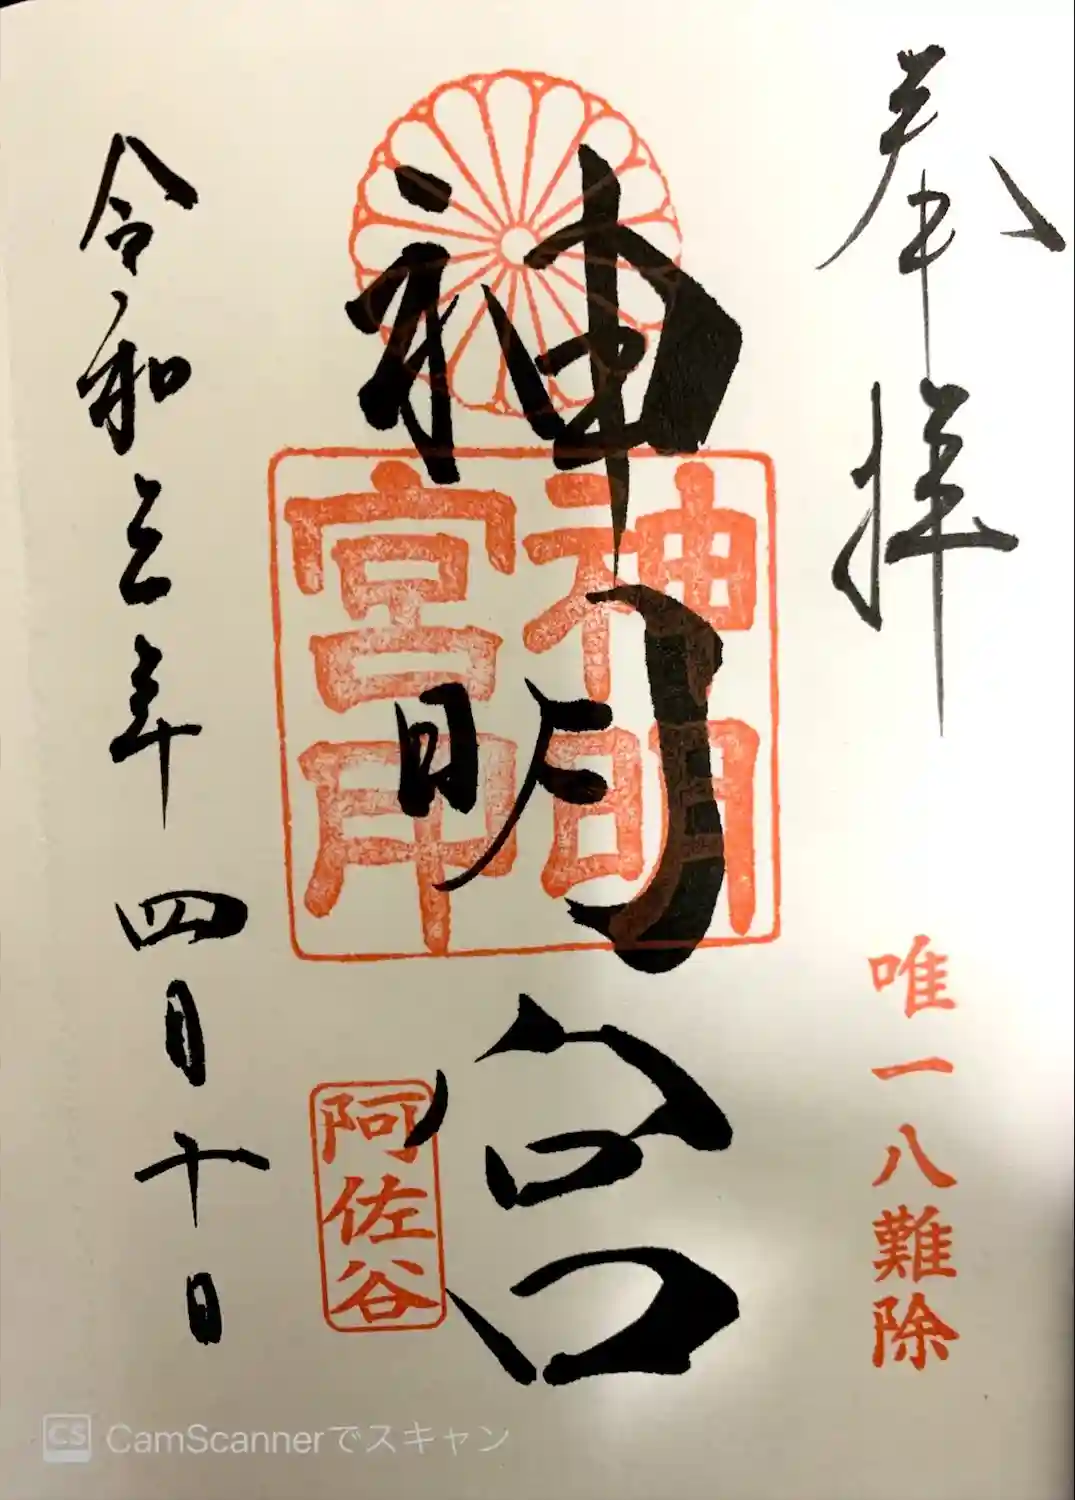 奉拝
唯一八難除
神明宮
神明
宮印
阿佐谷
令和三年四月十日
CS CamScannerでスキャン